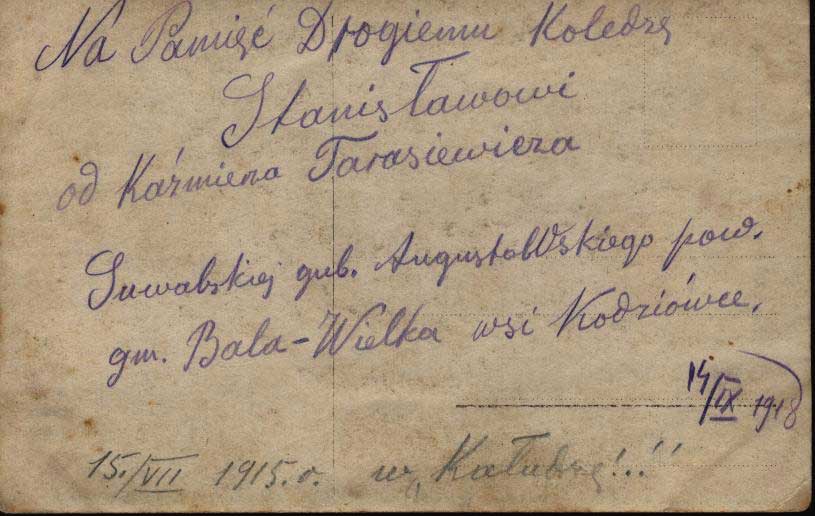 Na Pamięć Drogiemu Koledzę
Stanisławowi
od Kaźmiera Tarasiewicza
Suwalskiej gub. Augustowskiego pow.
gm. Bala-Wielka wsi Kodziówce.
14/IX 1918
15./VII 1915.r. w „Kałudze!..“